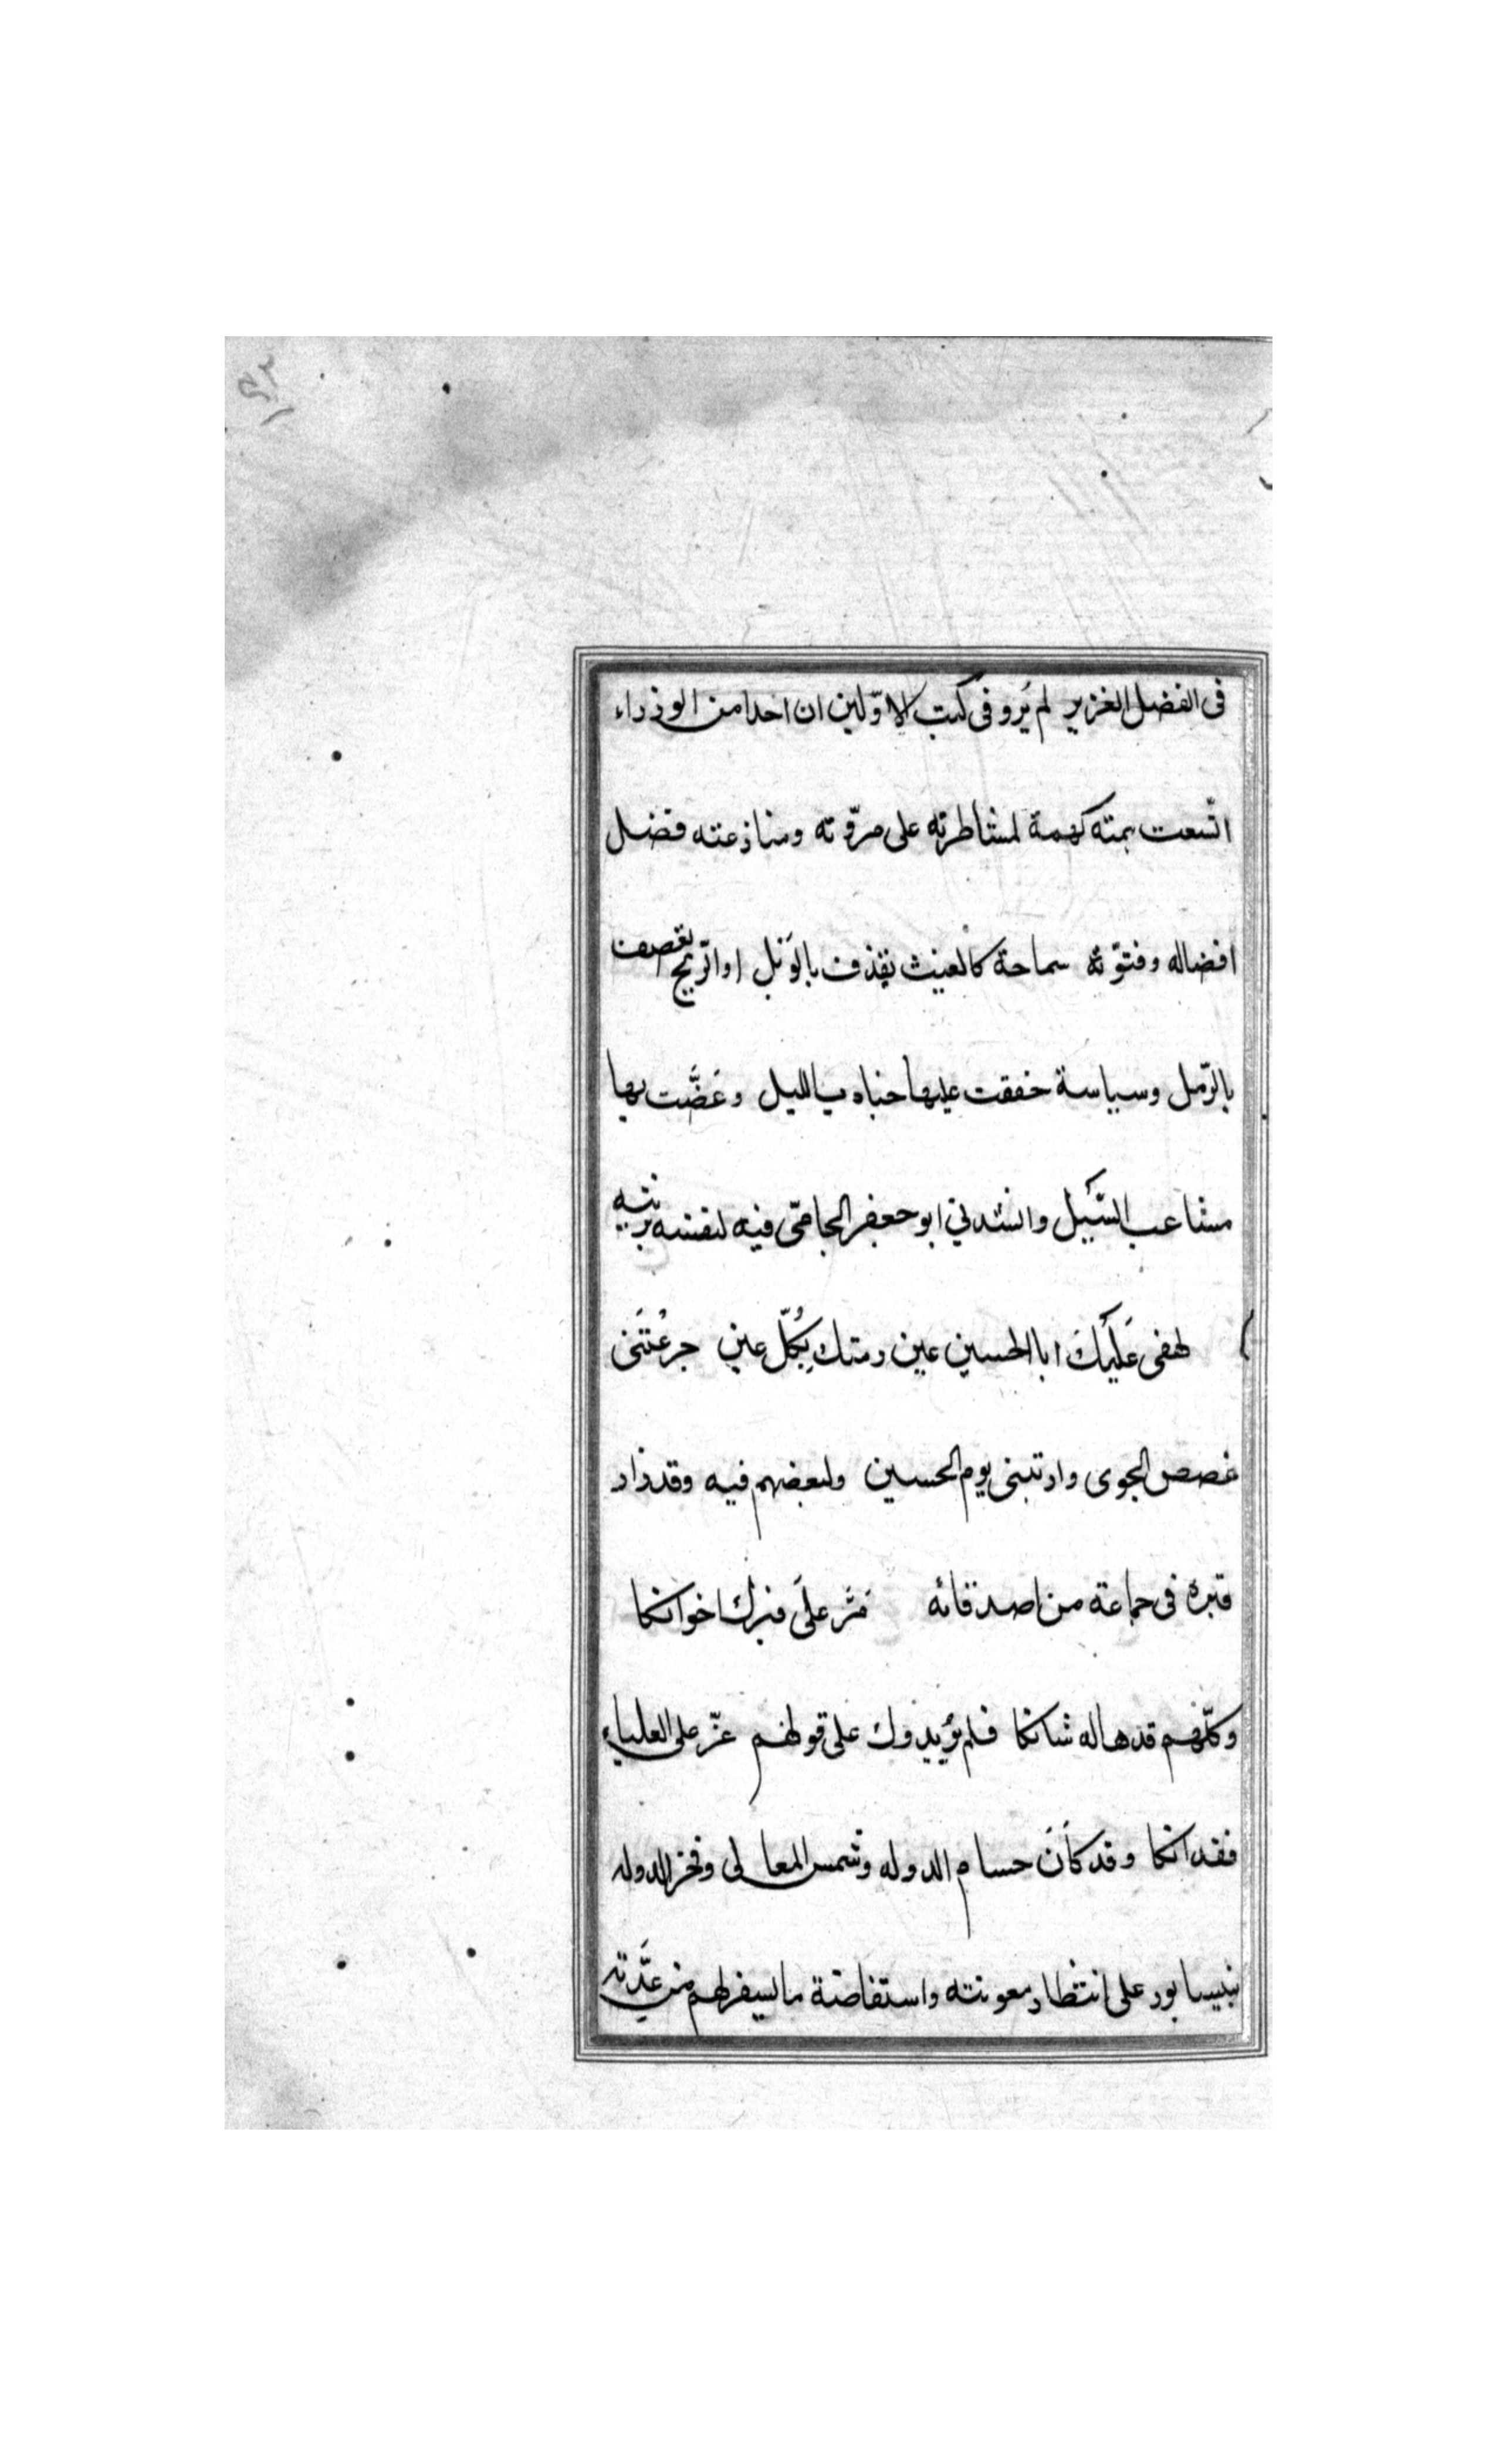 فى الفضل الغزير لم يُرو فى كتب الاوّلين ان احدا من الوزراء
اتّسعت همته كهمة لمشاطرته على مروّته ومنازعته فضل
افضاله وفتوّته سماحة كالغيث يقذف بالوَبل او الرّيح تعصف
بالرّمل وسياسة خفقت عليها حناديا الليل وغصَّت بها
مشاعب السّيل وانشدني ابو جعفر الجامىّ فيه لنفسه يرثيه
لهفى عَلَيكَ ابا الحسين عين رمتك بِكُلّ عين جرعْتَنى
غصص الجوى وارتبنى يوم الحسين ولبعضهم فيه وقد زار
قبره فى جماعة من اصدقائه مَرَّ علَى قبرك اخوانكا
وكلّهم قد هاله شانكا فلم يؤيدوك على قولهم عزّ على العلياء
فقدانكا وقد كَانَ حسام الدوله وشمس المعالى وفخر الدوله
بنيسابور على انتظار معونته واستفاضة ما يسفر لهم من عدَّته